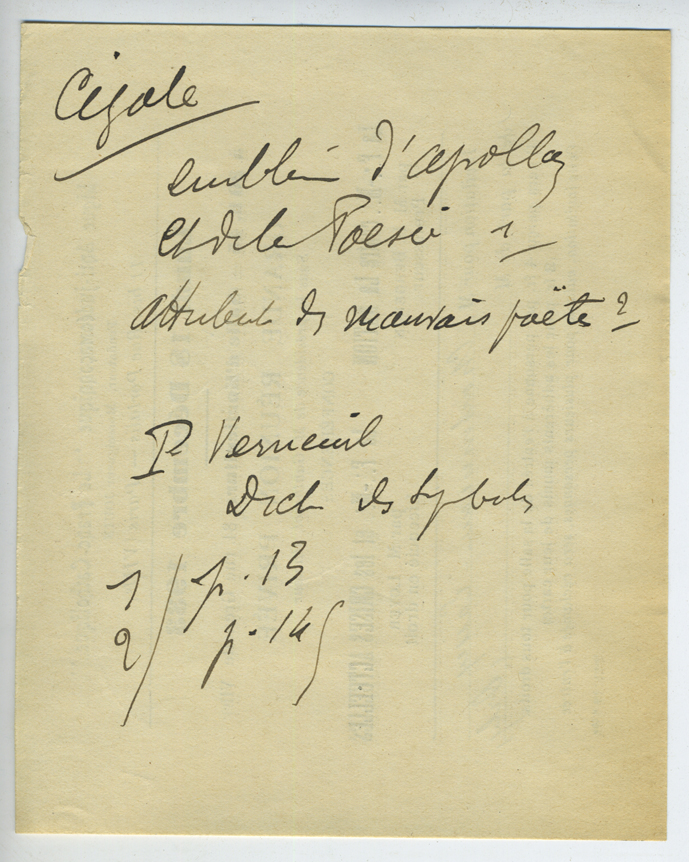 Cigale
emblème d'apollon
et de la Poesie 1
attribut des mauvais poëtes 2
P Verneuil
Dict des Symboles
1/ p. 13
2/ p. 145